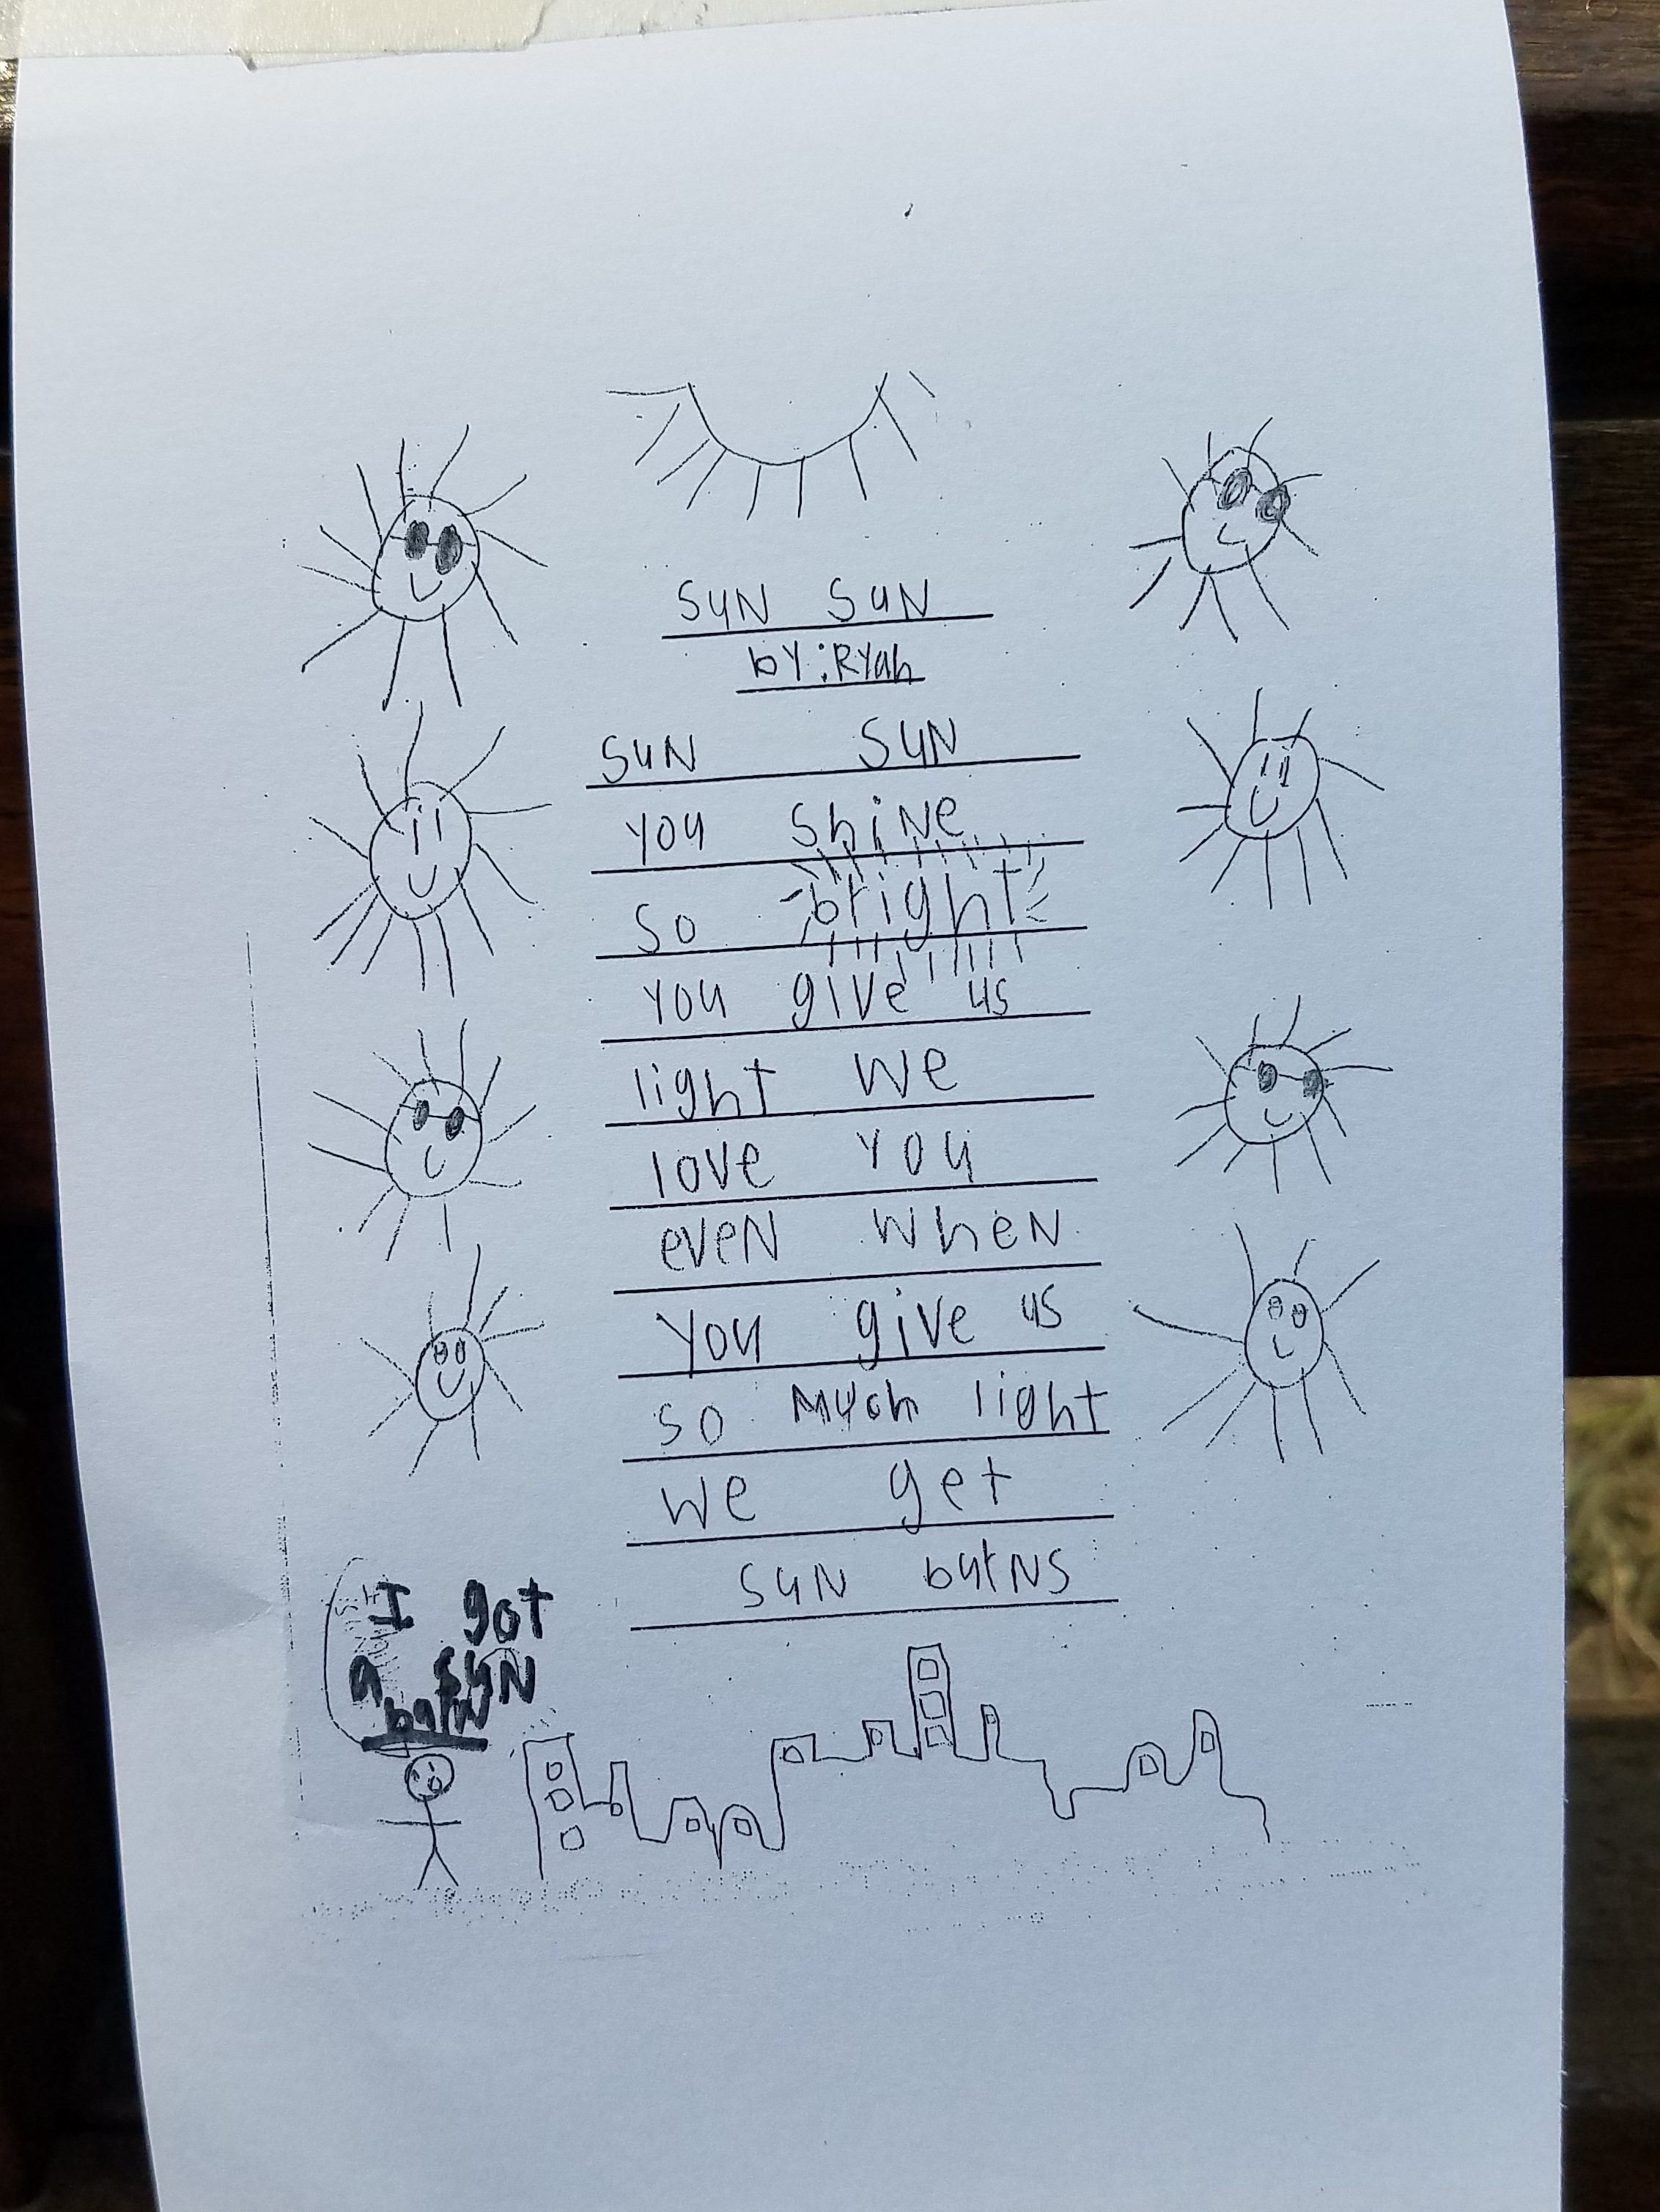 SuN SuN
by: Ryan
SuN SuN
you shiNe
so bright
you give us
light we
love you
eveN wheN
you give us
so Much light
we get
suN burNs
I got
a suN
burN